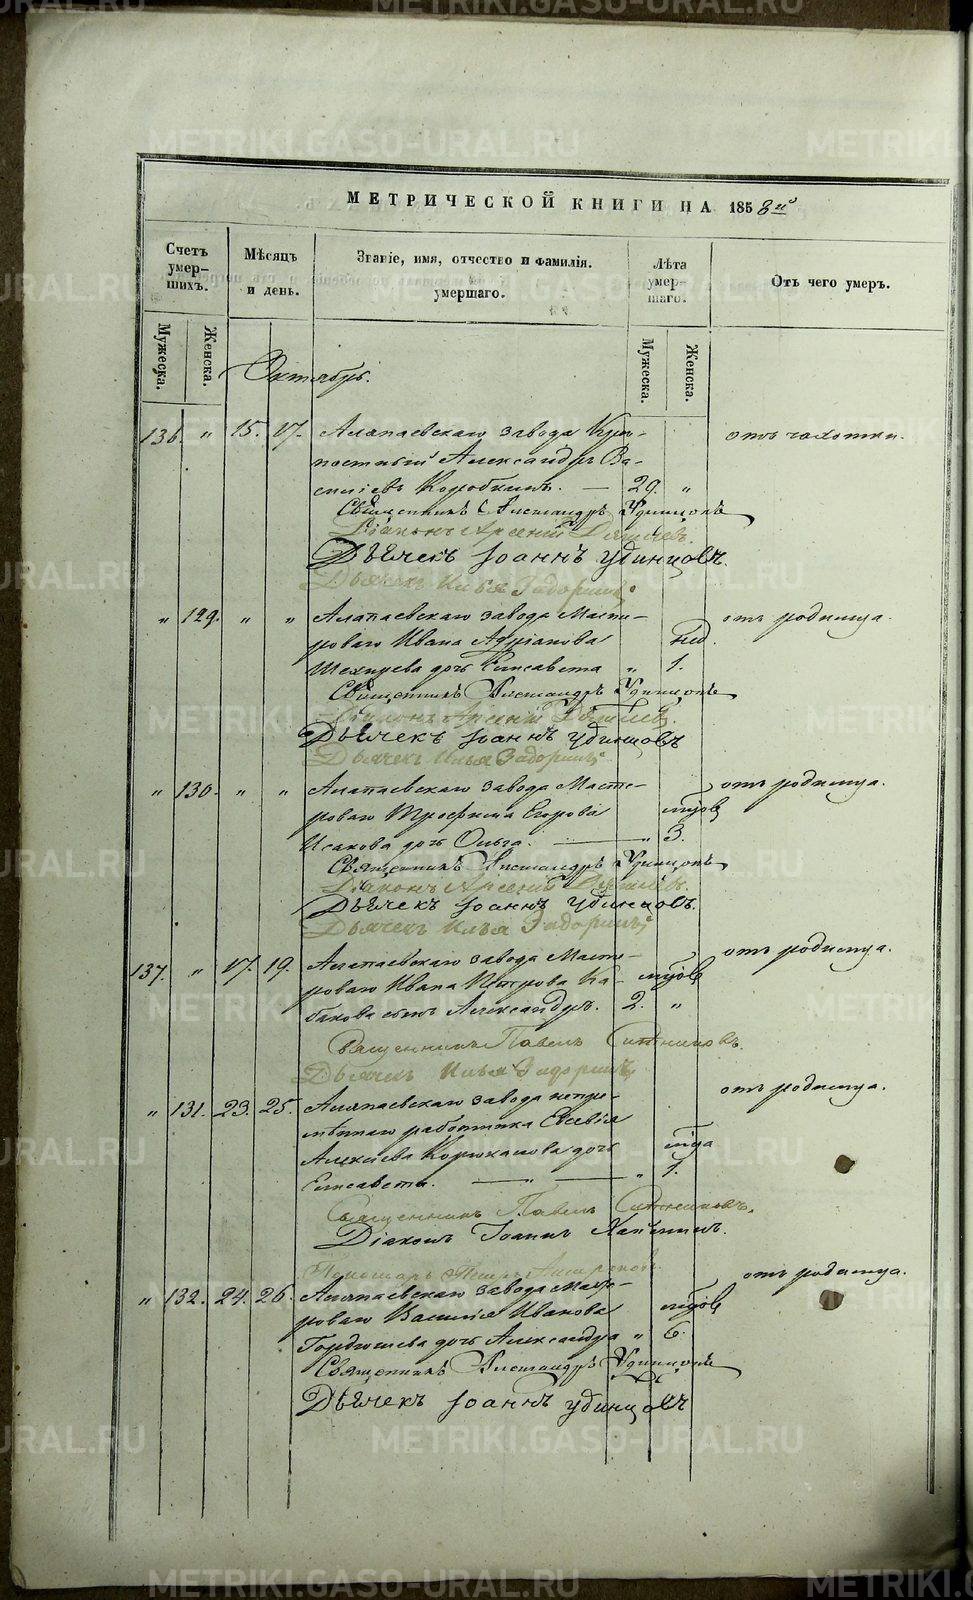 METRIKI.GASO-URAL.RU
МЕТРИЧЕСКОЙ КНИГИ НА 1858 й
Счетъ умер-шихъ.
Мѣсяцъ и день.
Званіе, имя, отчество и фамилія. умершаго.
Лѣта умер-шаго.
Отъ чего умеръ.
Мужеска. Женска.
Мужеска. Женска.
Октябрь.
136. " 15. 17. Алапаевскаго завода Крѣ- отъ чахотки.
постный Александръ Ва-
сильевъ Коробкинъ. — 29. "
Священникъ Александръ Удинцовъ
Діаконъ Арсеній
Дьячекъ Іоаннъ Удинцовъ.
Дьячекъ Илья Задоринъ
" 129. " " Алапаевскаго завода Масте- отъ родимца.
роваго Ивана Адріанова нед.
дочь Елисавета " 1.
Священникъ Александръ Удинцовъ
Діаконъ Арсеній
Дьячекъ Іоаннъ Удинцовъ
Дьячекъ Илья Задоринъ
" 130. " " Алапаевскаго завода Масте- отъ родимца.
роваго Трофима Егорова мцовъ
Исакова дочь Ольга. — " 3.
Священникъ Александръ Удинцовъ
Діаконъ Арсеній
Дьячекъ Іоаннъ Удинцовъ.
Дьячекъ Илья Задоринъ
137. " 17. 19. Алапаевскаго завода Масте- отъ родимца.
роваго Ивана Петрова Ка- мцовъ
бакова сынъ Александръ. 2. "
Священникъ Павелъ Ситниковъ.
Дьячекъ Илья Задоринъ
" 131. 23. 25. Алапаевскаго завода непре- отъ родимца.
мѣннаго работника Евсевія
Алексѣева дочь мца
Елисавета. — " — " 1.
Священникъ Павелъ Ситниковъ.
Діаконъ Іоаннъ
Пономарь
" 132. 24. 26. Алапаевскаго завода Масте- отъ родимца.
роваго Василія Иванова мцовъ
дочь Александра " 6.
Священникъ Александръ Удинцовъ
Дьячекъ Іоаннъ Удинцовъ